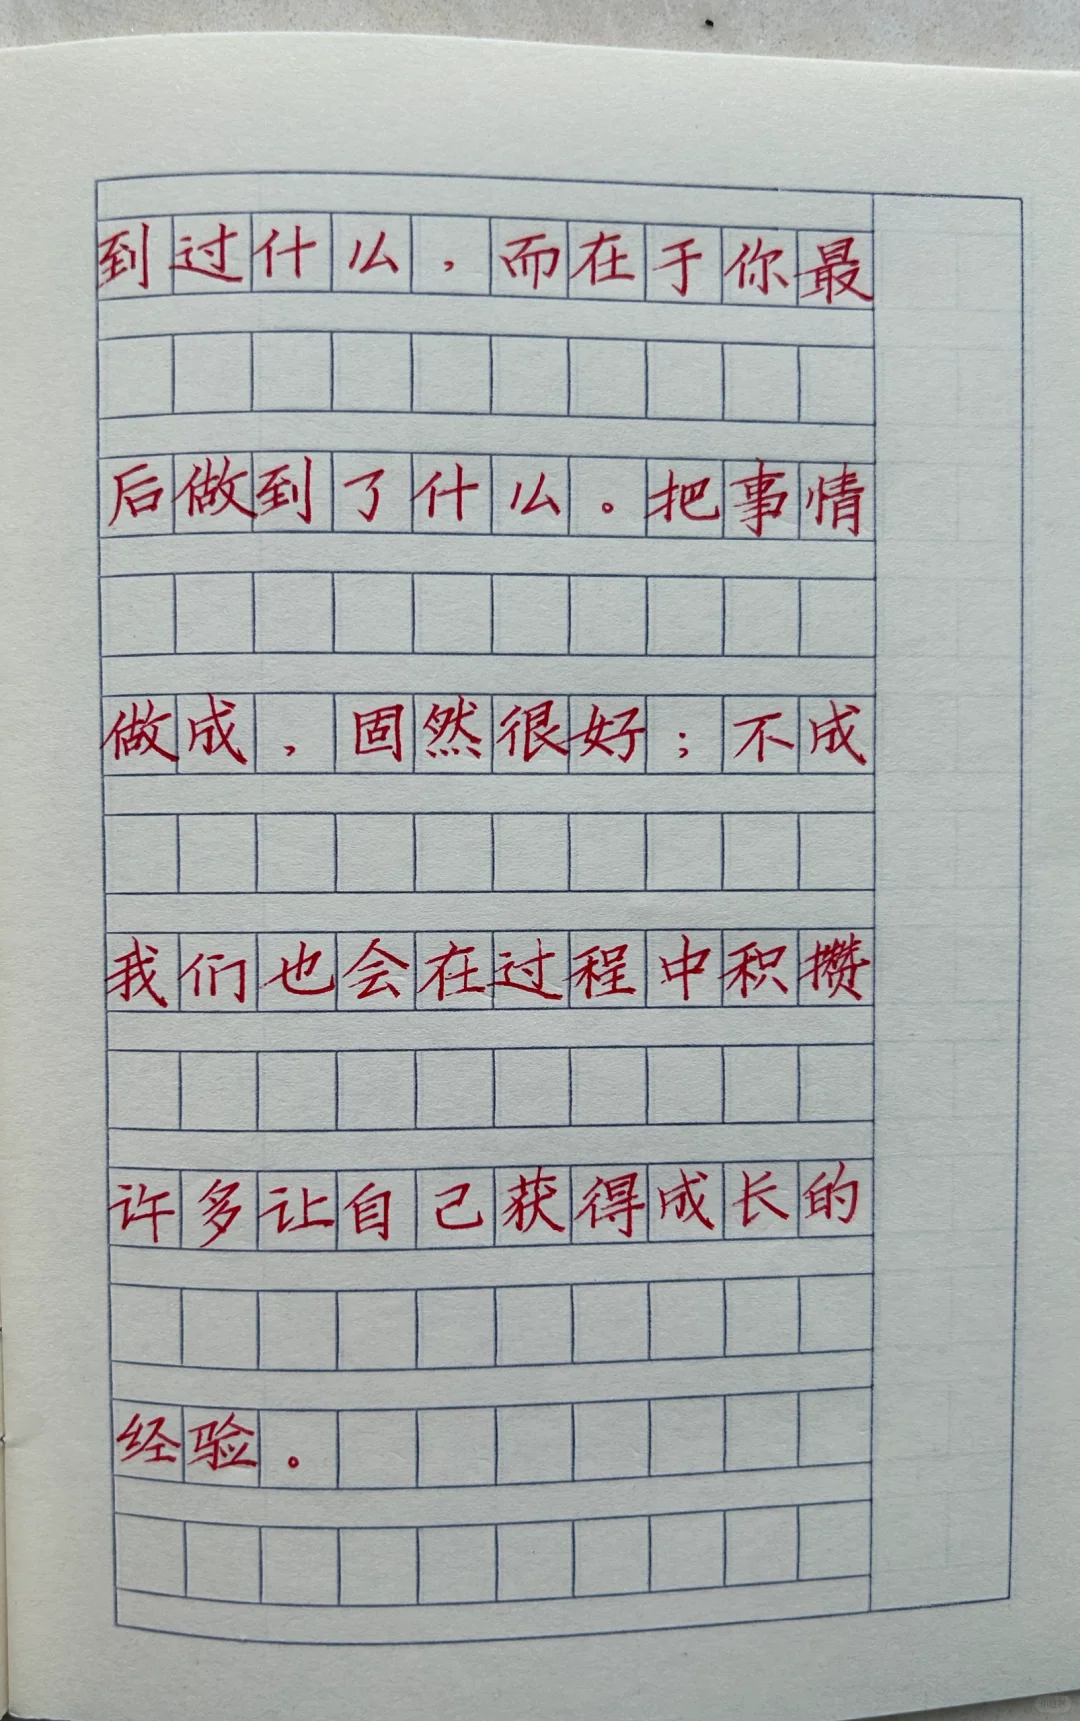 到过什么，而在于你最
后做到了什么。把事情
做成，固然很好；不成
我们也会在过程中积攒
许多让自己获得成长的
经验。